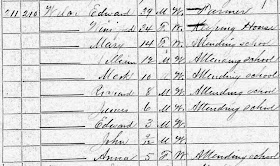 211 210 Edward 39 M W Farmer
34 F W Keeping House
Mary 14 F W Attending school
12 M W Attending school
10 M W Attending school
8 M W Attending school
James 6 M W Attending school
Edward 3 M W
John M W
Anna 5 F W Attending school